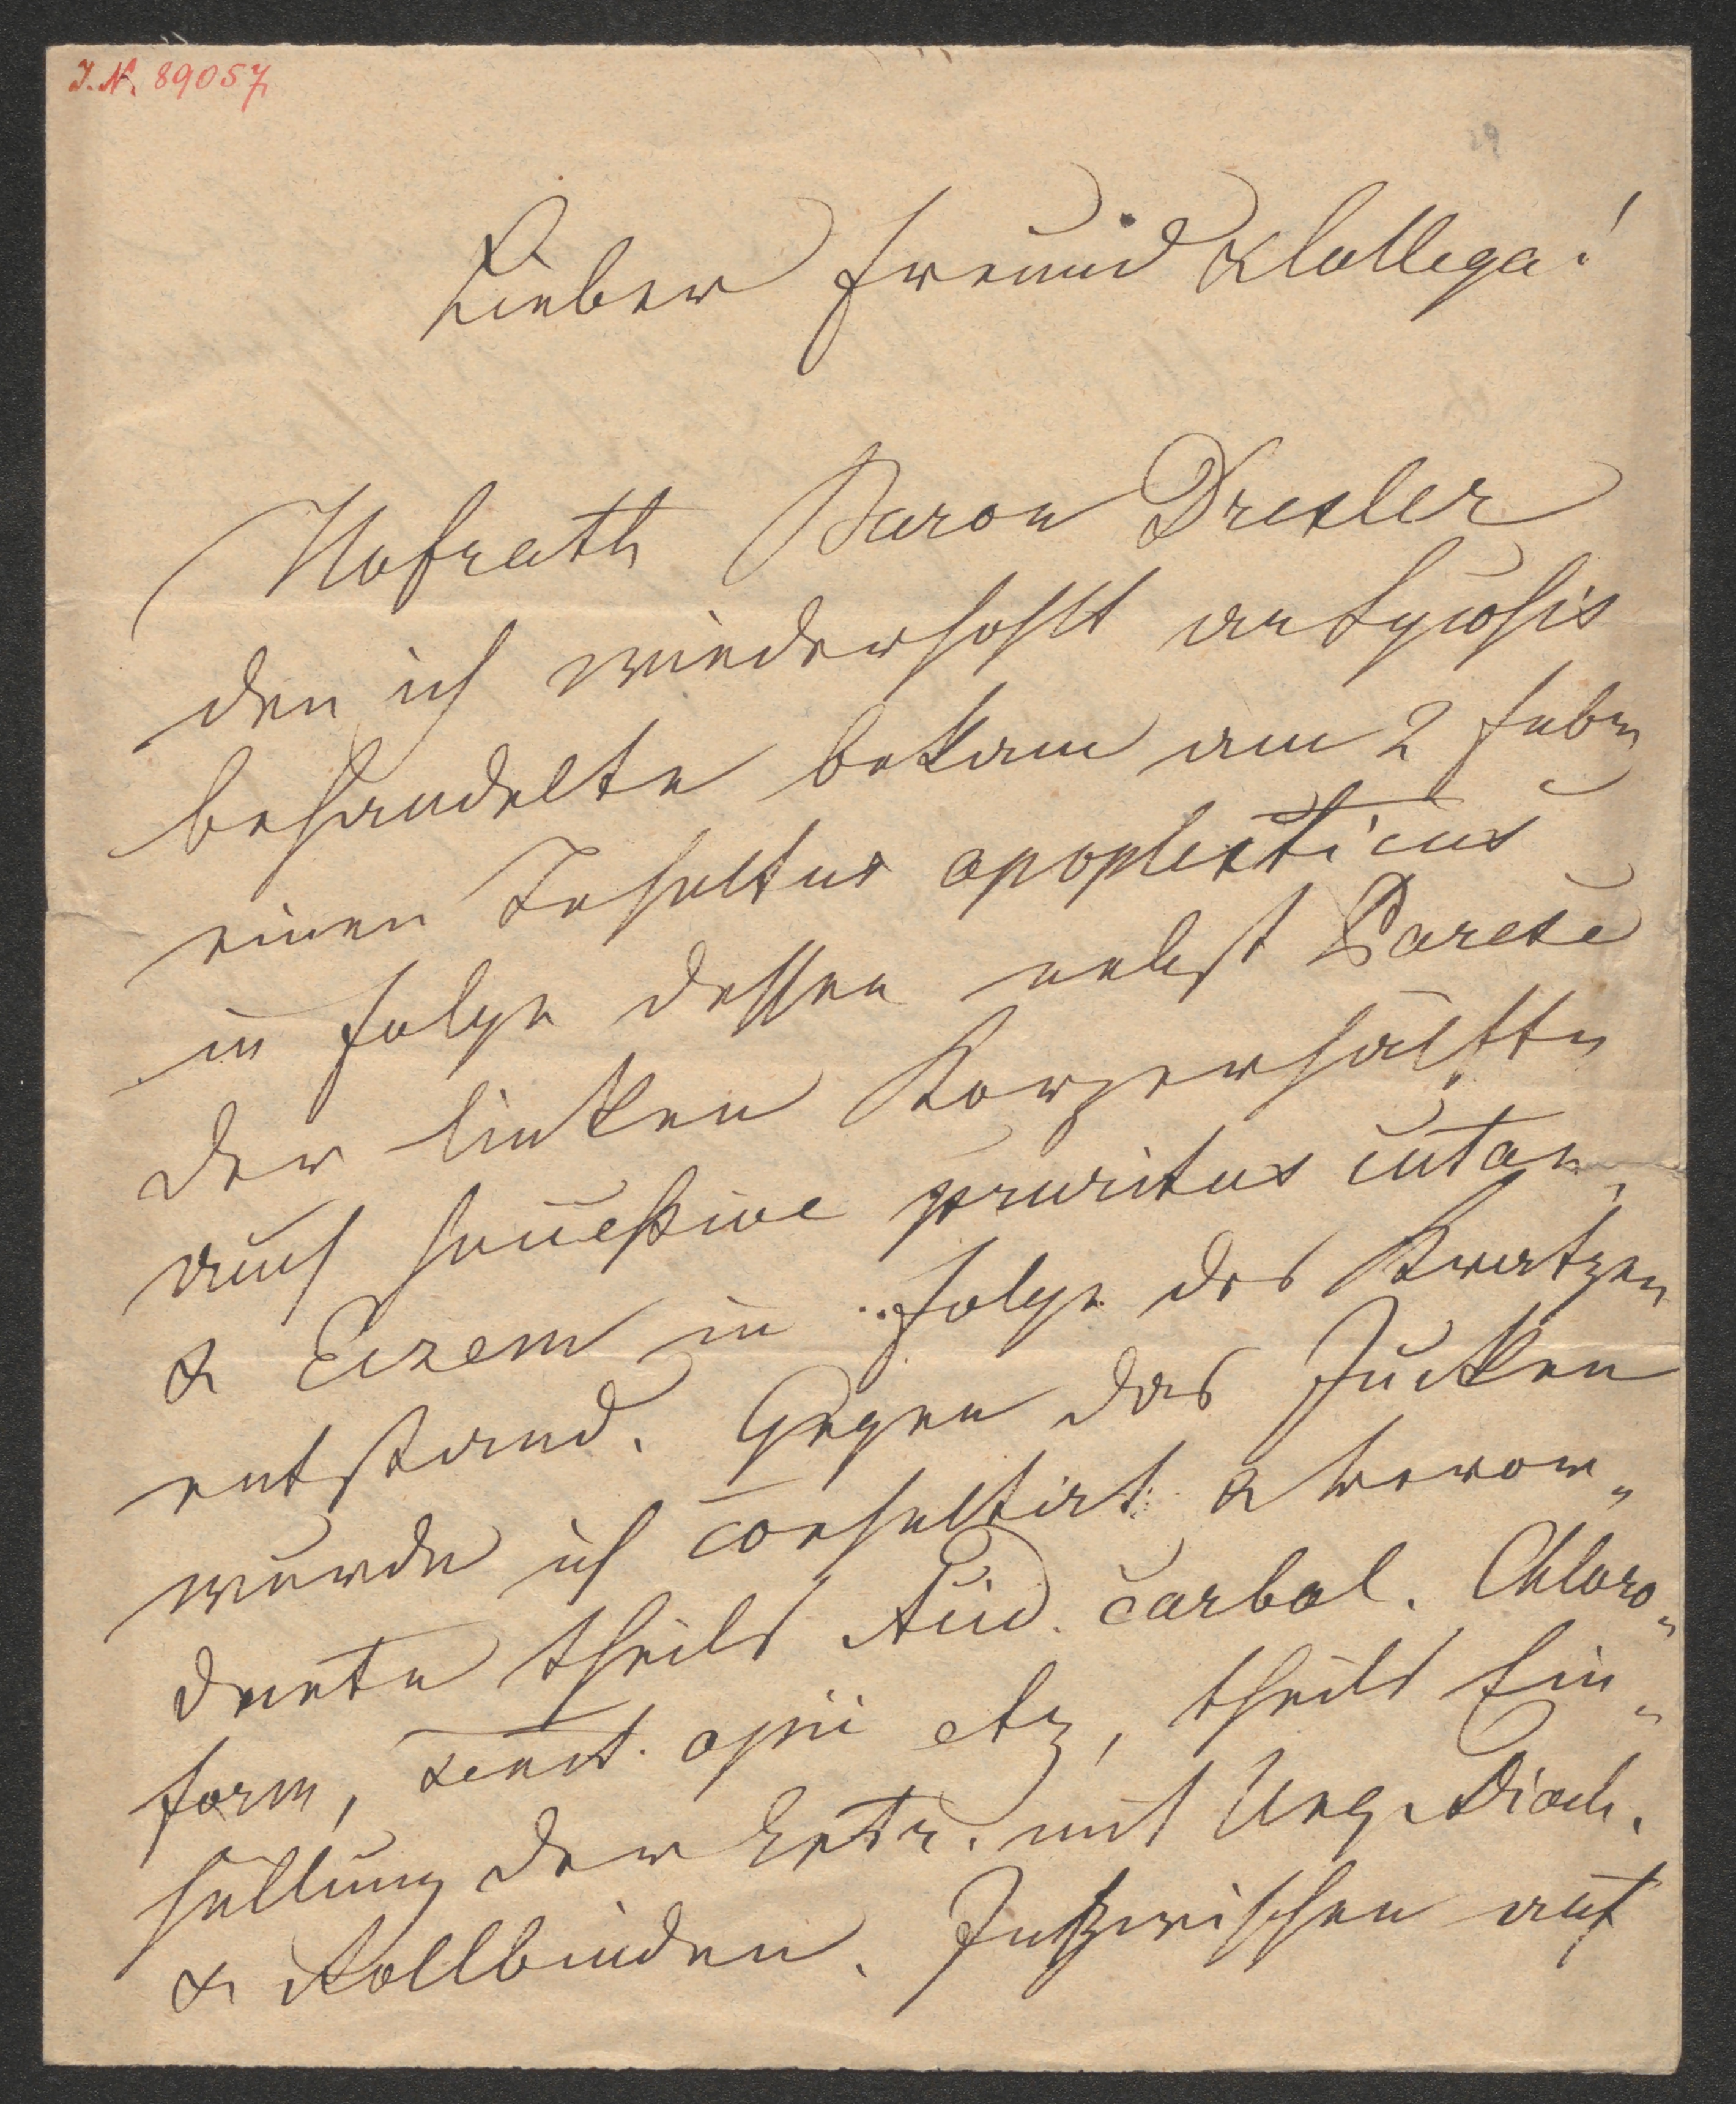 I.N. 89057
29
Lieber Freund & Collega!
Hofrath Baron Drexler
den ich wiederhohlt an Sycosis
behandelte bekam am 2 Febr
einen Insultus apoplecticus
in Folge dessen nebst Parese
der linken Körperhälfte
auch successive pruritus cutan.
& Eczem in Folge des Kratzen
entstand. Gegen das Jucken
wurde ich consultirt & veror-
dnete theils Acid. carbol. Chloro-
form, tinct. opii etz, theils Ein-
hüllung der Extr. mit Ung. Diach.
& Rollbinden. Inzwischen auf